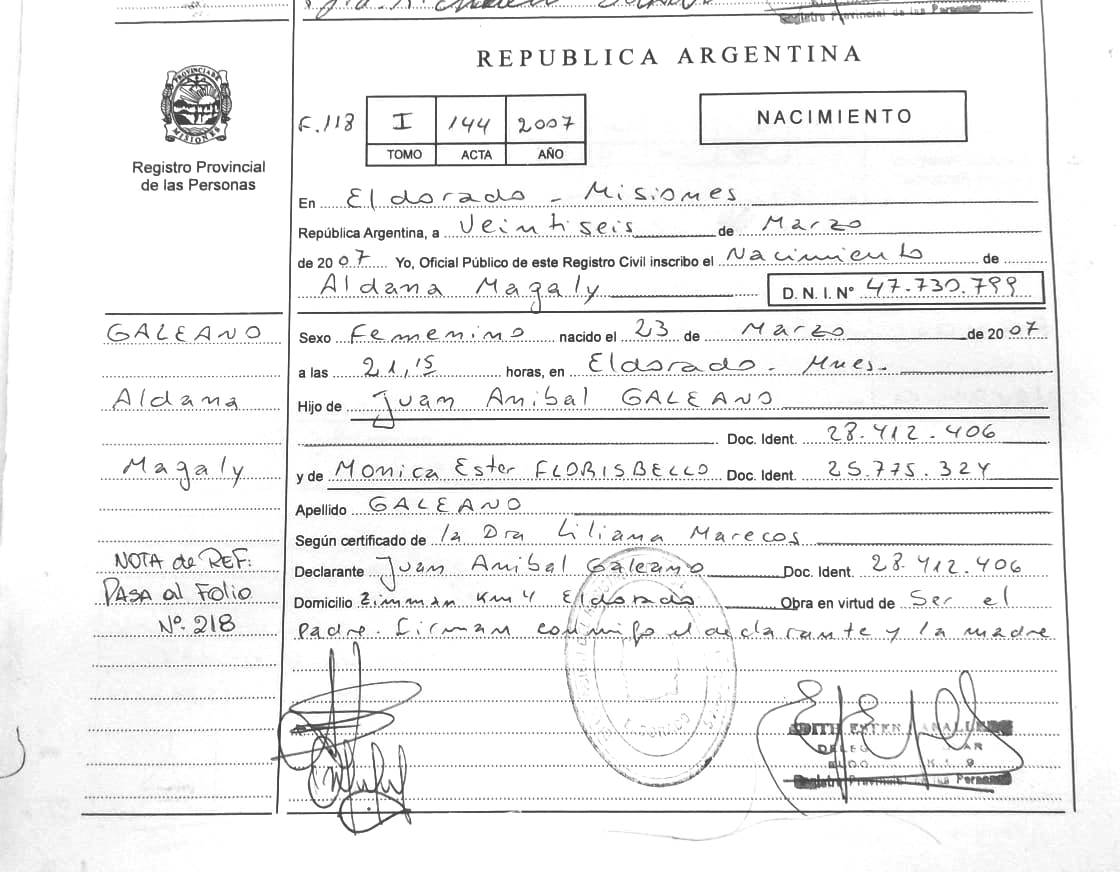 Registro Provincial de las Personas
REPUBLICA ARGENTINA
PROVINCIA DE MISIONES
Registro Provincial
de las Personas
F.118 I 144 2007
TOMO ACTA AÑO
NACIMIENTO
En Eldorado - Misiones
República Argentina, a Veintiseis de Marzo
de 2007 Yo, Oficial Público de este Registro Civil inscribo el Nacimiento de
Aldana Magaly D.N.I.Nº 47.730.799
GALEANO
Aldana
Magaly
NOTA de REF:
PASA al Folio
Nº. 218
Sexo Femenino nacido el 23 de Marzo de 2007
a las 21,15 horas, en Eldorado - Mnes.
Hijo de Juan Anibal GALEANO
Doc. Ident. 28.412.406
y de Monica Ester FLORISBELLO Doc. Ident. 25.775.324
Apellido GALEANO
Según certificado de la Dra Liliana Marecos
Declarante Juan Anibal Galeano Doc. Ident. 28.412.406
Domicilio Zimman Km 4 Eldorado Obra en virtud de Ser el
Padre. Firman conmigo el declarante y la madre
EDITH ESTER
Registro Provincial de las Personas